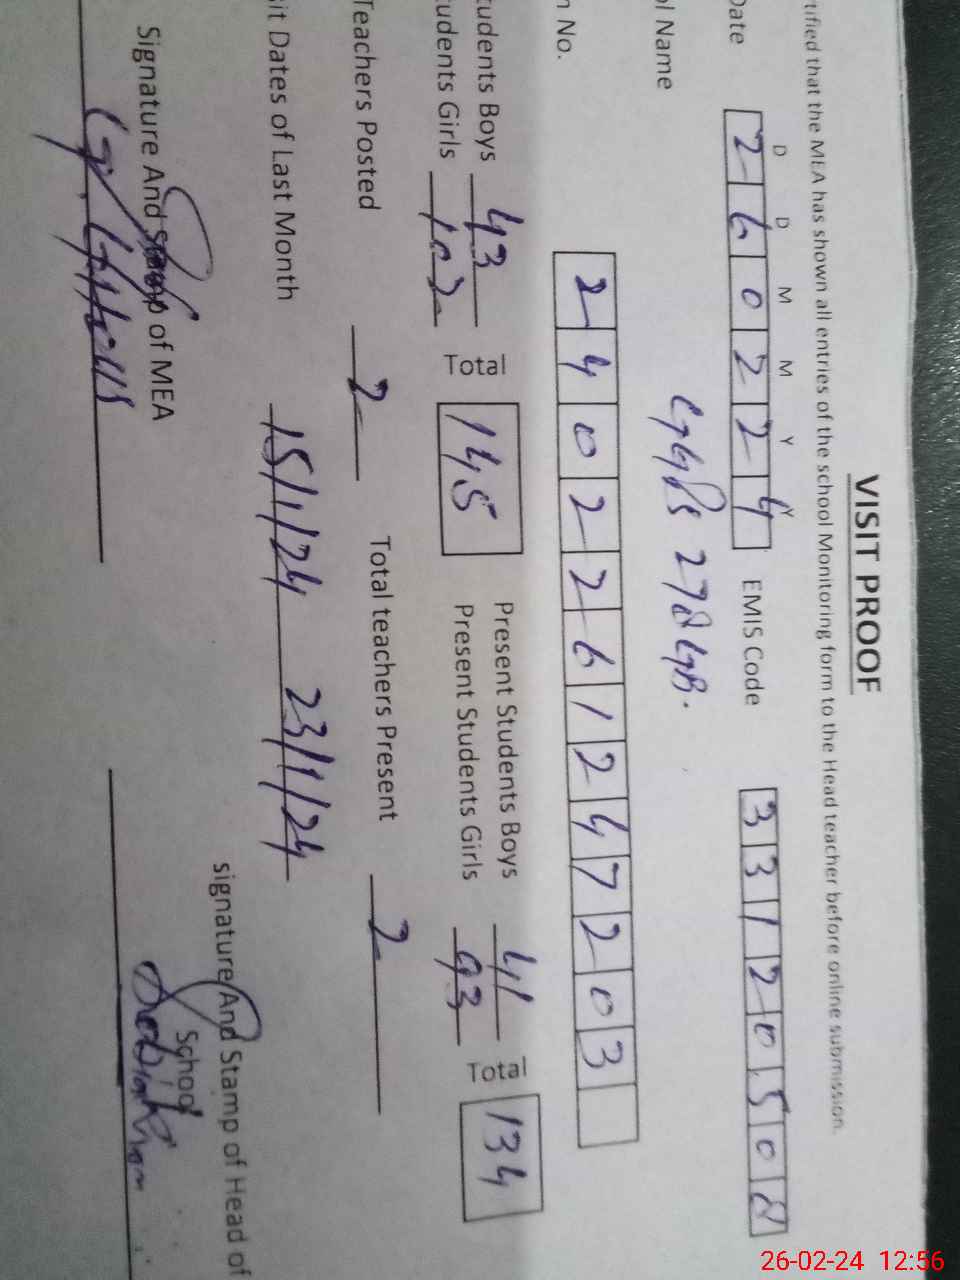 VISIT PROOF
rtified that the MEA has shown all entries of the school Monitoring form to the Head teacher before online submission.
D D M M Y Y
Date 2 6 0 2 2 4 EMIS Code 3 3 1 2 0 5 0 8
ol Name
n No. 2 4 0 2 2 6 1 2 4 7 2 0 3
tudents Boys 43 Total 145 Present Students Boys 41 Total 134
tudents Girls 102 Present Students Girls 93
Teachers Posted 2 Total teachers Present 2
it Dates of Last Month 15/1/24 23/1/24
Signature And Stamp of MEA
signature And Stamp of Head of
School
26-02-24 12:56